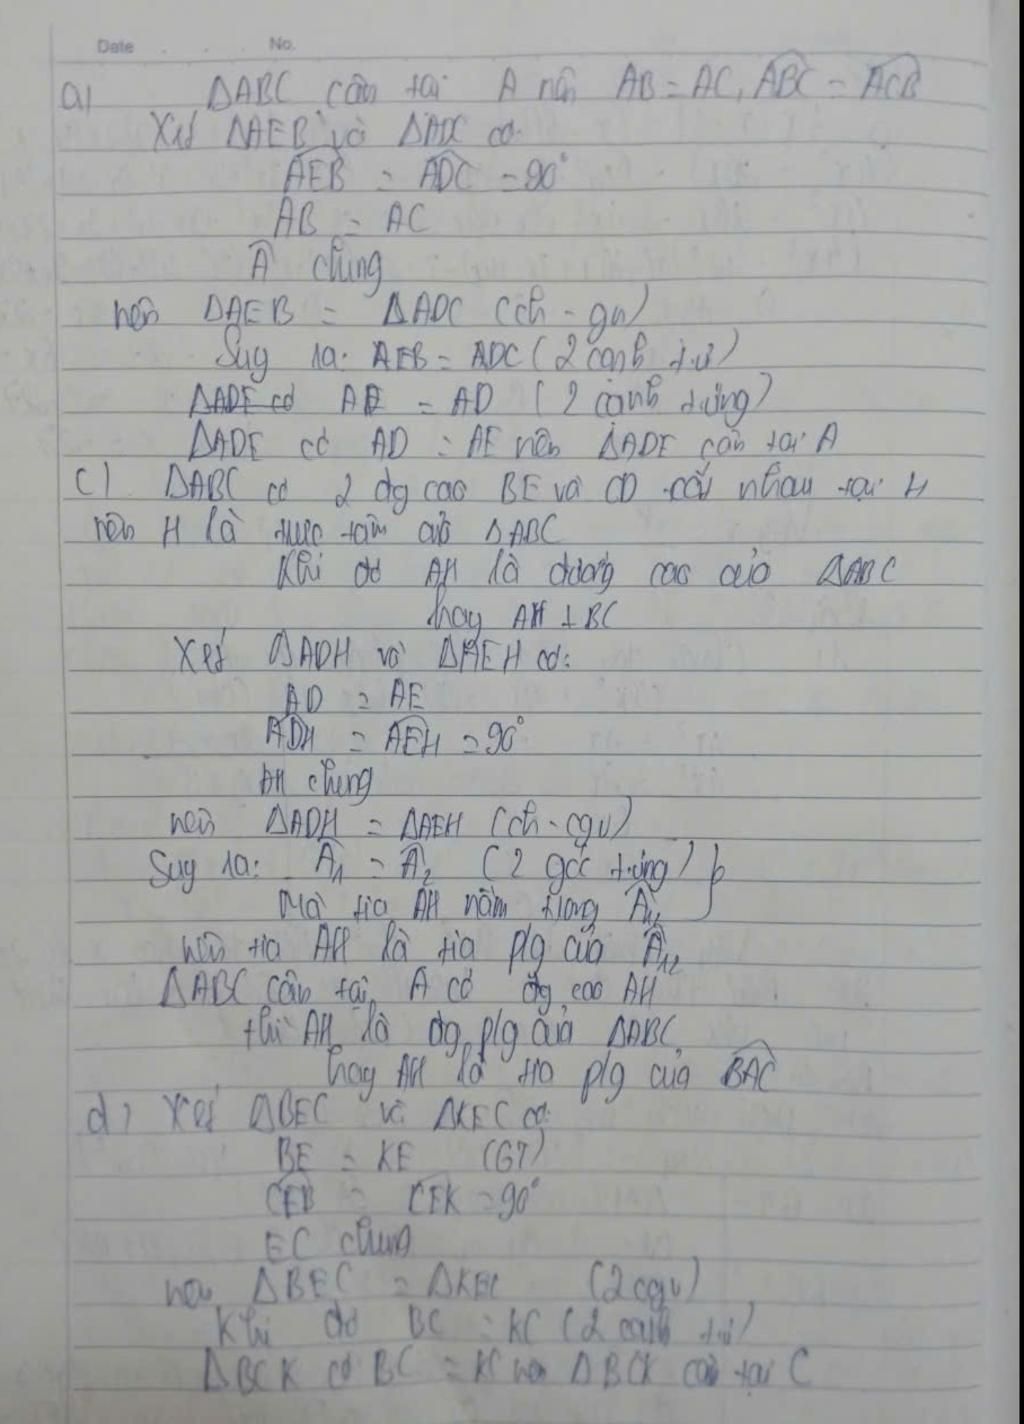 Date . . . No.
a) ΔABC cân tại A nên AB = AC, ABC = ACB
Xét ΔAEB và ΔADC có:
AEB = ADC = 90°
AB = AC
A chung
nên ΔAEB = ΔADC (ch - gn)
Suy ra: AEB = ADC (2 cạnh t.ư)
ΔADE có AE = AD (2 cạnh t.ứng)
ΔADE có AD = AE nên ΔADE cân tại A
c) ΔABC có 2 đg cao BE và CD cắt nhau tại H
nên H là trực tâm của ΔABC
Khi đó AH là đường cao của ΔABC
hay AH ⊥ BC
Xét ΔADH và ΔAEH có:
AD = AE
ADH = AEH = 90°
AH chung
nên ΔADH = ΔAEH (ch - cgv)
Suy ra: A1 = A2 (2 góc t.ứng)
Mà tia AH nằm trong A12
nên tia AH là tia p/g của A12
ΔABC cân tại A có đg cao AH
thì AH là đg p/g của ΔABC
hay AH là tia p/g của BAC
d) Xét ΔBEC và ΔKEC có:
BE = KE (GT)
CEB = CEK = 90°
EC chung
nên ΔBEC = ΔKEC (2cgv)
Khi đó BC = KC (2 cạnh t.ư)
ΔBCK có BC = KC nên ΔBCK cân tại C